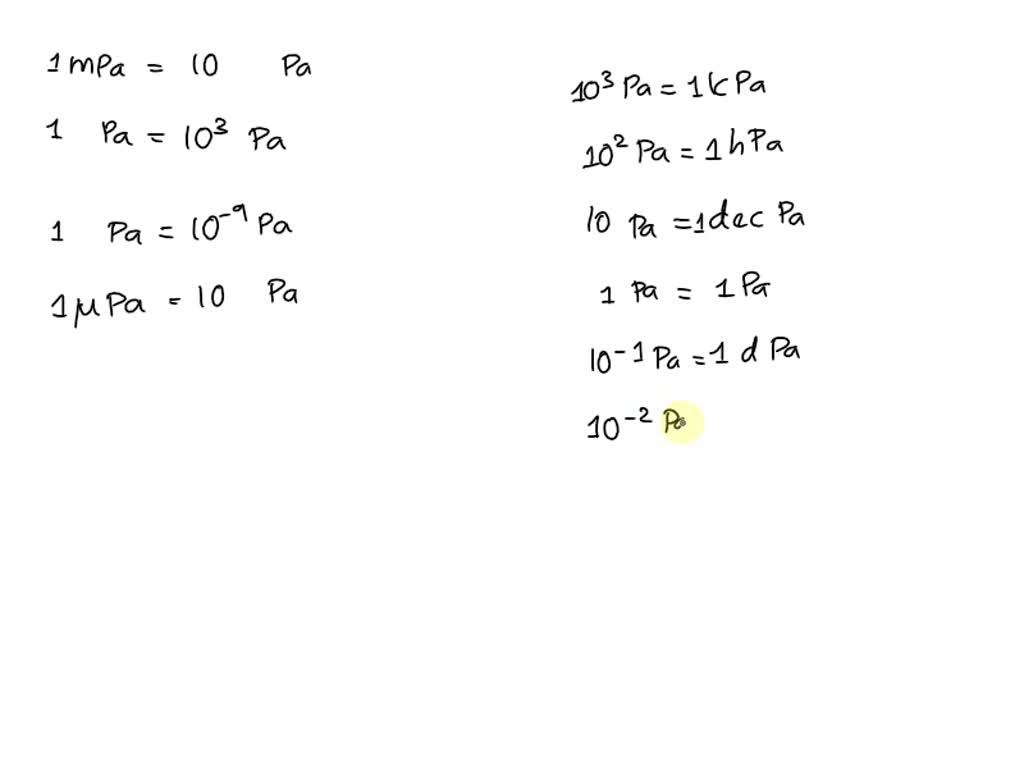 1 mPa = 10 Pa
1 Pa = 10³ Pa
1 Pa = 10⁻⁹ Pa
1 μPa = 10 Pa
10³ Pa = 1 kPa
10² Pa = 1 hPa
10 Pa = 1 dec Pa
1 Pa = 1 Pa
10⁻¹ Pa = 1 d Pa
10⁻² Pa